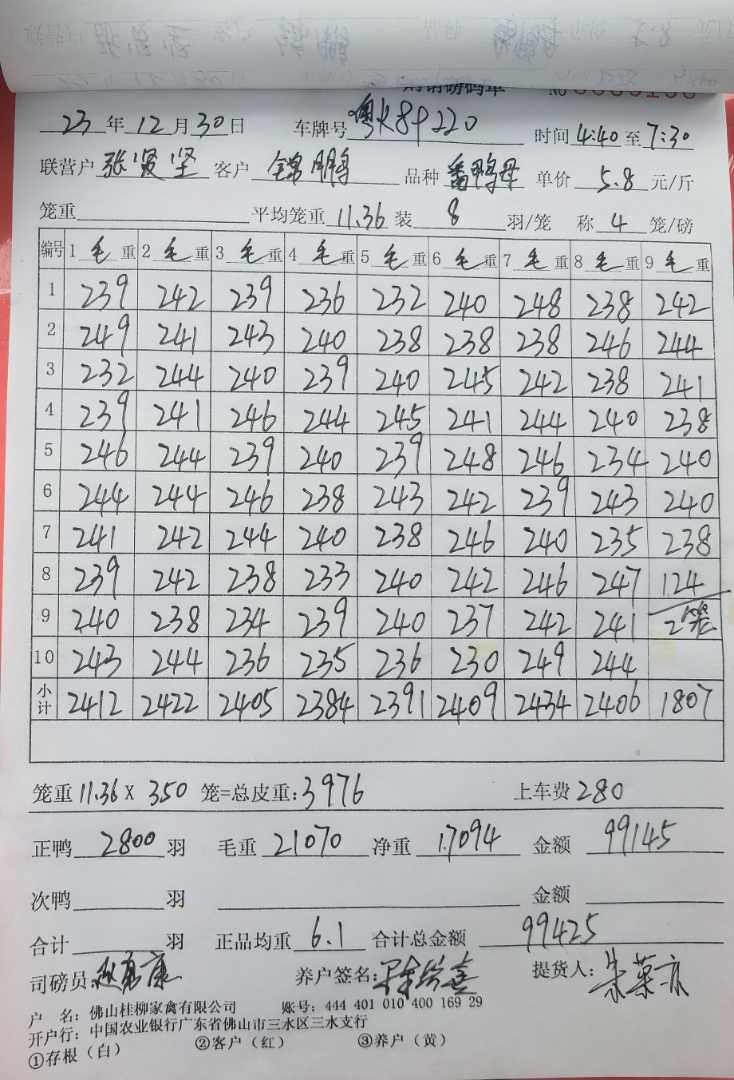 购销磅码单 NO
23年12月30日 车牌号 粤K8P220 时间 4:40 至 7:30
联营户 张贤坚 客户 锦鹏 品种 番鸭母 单价 5.8 元/斤
笼重 平均笼重 11.36 装 8 羽/笼 称 4 笼/磅
编号 1 毛重 2 毛重 3 毛重 4 毛重 5 毛重 6 毛重 7 毛重 8 毛重 9 毛重
1 239 242 239 236 232 240 248 238 242
2 249 241 243 240 238 238 238 246 244
3 232 244 240 239 240 245 242 238 241
4 239 241 246 244 245 241 244 240 238
5 246 244 239 240 239 248 246 234 240
6 244 244 246 238 243 242 239 243 240
7 241 242 244 240 238 246 240 235 238
8 239 242 238 233 240 242 246 247 124
9 240 238 234 239 240 237 242 241 2笼
10 243 244 236 235 236 230 249 244
小计 2412 2422 2405 2384 2391 2409 2434 2406 1807
笼重 11.36 X 350 笼=总皮重:3976 上车费 280
正鸭 2800 羽 毛重 21070 净重 17094 金额 99145
次鸭 羽 金额
合计 羽 正品均重 6.1 合计总金额 99425
司磅员 养户签名: 提货人:
户 名：佛山桂柳家禽有限公司 账号：444 401 010 400 169 29
开户行：中国农业银行广东省佛山市三水区三水支行
①存根（白） ②客户（红） ③养户（黄）